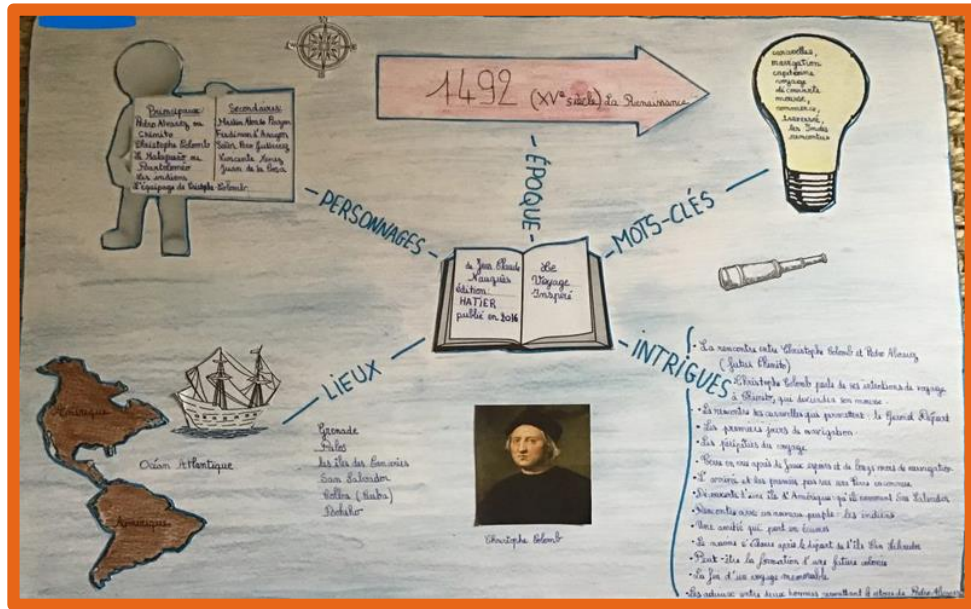 Principaux:
Pedro Alvarez ou
Chinito
Christophe Colomb
El Malagueño ou
Bartoloméo
Les indiens
L'équipage de Christophe Colomb.
Secondaires:
Martin Alonzo Pinzon
Ferdinand d'Aragon
Señor Pero Gutierrez
Vincente Yanez
Juan de la Cosa
1492 (XVe siècle) La Renaissance
caravelles,
navigation
capitaine
voyage
découverte
mousse,
commerce,
traversé,
les Indes
rencontres
PERSONNAGES
ÉPOQUE
MOTS-CLÉS
de Jean Claude
édition:
HATIER
publié en 2016
Le
Voyage
Inspiré
LIEUX
INTRIGUES
Amérique
Océan Atlantique
Amérique
Grenade
Palos
les îles des Canaries
San Salvador
(Cuba)
Bohiho
Christophe Colomb
• La rencontre entre Christophe Colomb et Pedro Alvarez
(futur Chinito)
Christophe Colomb parle de ses intentions de voyage
à Chinito, qui deviendra son mousse.
les caravelles qui permettent le Grand Départ
• Les premiers jours de navigation.
• Les péripéties du voyage
• Terre en vue après de faux espoirs et de longs mois de navigation
• L'arrivée et les premiers pas sur une terre inconnue
• Découverte d'une île d'Amérique qu'ils nomment San Salvador
• Rencontre avec un nouveau peuple: les indiens
• Une amitié qui part en écumes
• Le navire s'échoue après le départ de l'île San Salvador
• Peut-être la formation d'une future colonie
• La fin d'un voyage mémorable
• Les adieux entre deux hommes Pedro Alvarez